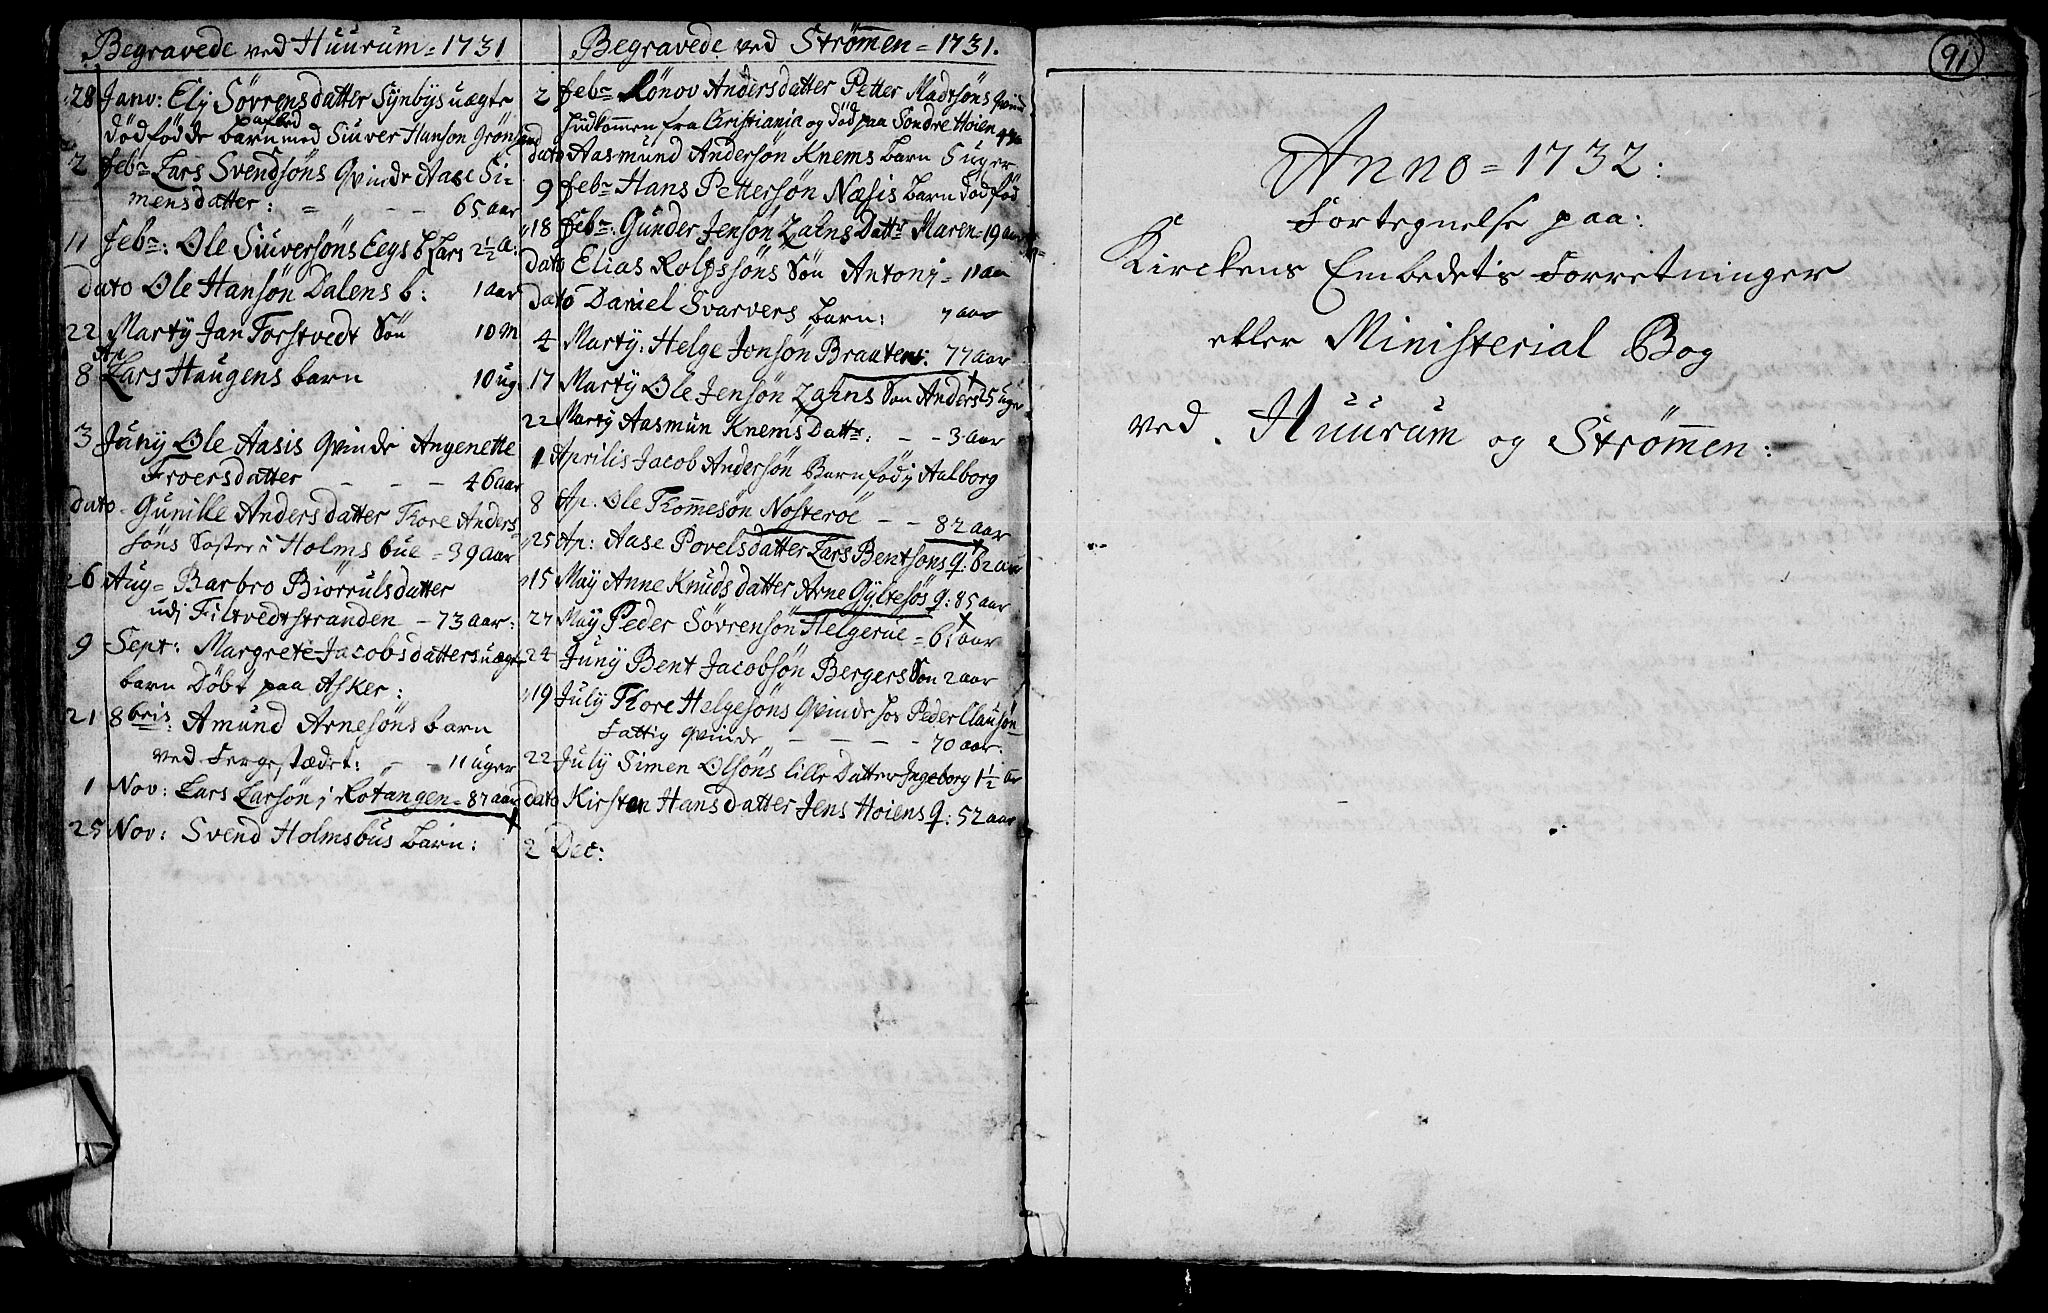 Begravede ved Huurum = 1731
28 Janv: Elj Sövrensdatter Synbys uægte
dödfödde barn med Siuver Hanson Grön
2 Febr Lars Svendsöns Qvinde Aase Si=
mensdatter: = - - 65 aar
11 Febr: Ole Siuversöns Eegs b Lars 2½ a:
dato Ole Hansön Dalens b: 1 aar
22 Martij Jan Torstvedt Sön 10 M
8 Ap Lars Haugens barn 10 ug
3 Junij Ole Aasis Qvinde Angenette
Froersdatter - - - 46 aar
dato Gunille Andersdatter Tore Anders
söns Söster i Holmsbue = 39 aar
26 Aug = Barbro Biörrulsdatter
udj Filtvedtstranden - 73 aar:
9 Sept: Margrete Jacobsdatters uægt
barn Döbt paa Asker:
21 8bris: Amund Arnesöns barn
ved Fergestædet: - - 11 uger
1 Nov: Lars Larsön i Rötangen = 87 aar
25 Nov: Svend Holmsbus barn:
Begravede ved Strömen = 1731.
2 Febr Rönov Andersdatter Petter Madtsöns Qvinde
hidkommen fra Christiania og död paa Söndre Höien
dato Aasmund Andersön Knems barn 5 uger
9 Febr Hans Pettersön Næsis barn dödföd
18 Febr: Gunder Jensön Zahns Dattr Maren = 19 aar
dato Elias Rolfssöns Sön Antonj = 11 aar
dato Daniel Svarvers barn: 7 aar
4 Martij: Helge Jonsön Brauten: 77 aar
17 Martij Ole Jensön Zahns Sön Anders 25 uger
22 Martij Aasmun Knems Dattr: - - 3 aar
1 Aprilis Jacob Andersön Barnföd j Aalborg
8 Ap. Ole Tommesön Nösteröe - - 82 aar
25 Ap: Aase Povelsdatter Lars Bentsons q: 62 aar
15 Maij Anne Knudsdatter Arne Gyltesös q: 85 aar
27 Maij Peder Sövrensön Helgerue = 61 aar
24 Junij Bent Jacobsön Bergers Sön 2 aar
19 July Tore Helgesöns Qvinde hos Peder Clausön
Fattig qvinde - - - - 70 aar:
22 July Simen Olsöns lille Datter Ingeborg 1½ ar
dato Kirsten Hansdatter Jens Hoiens q: 52 aar
2 Dec:
91
Anno = 1732:
Fortegnelse paa:
Kirckens Embedets Forretninger
eller Ministerial Bog
ved Huurum og Strömmen: